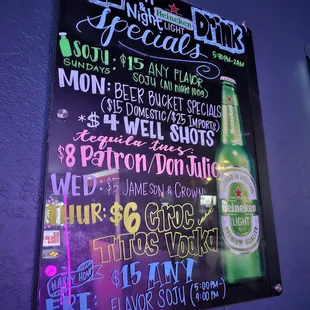 Night Heineken LIGHT Drink
Specials
5:30PM-2AM
SOJU : $15 ANY FLAVOR
SUNDAYS SOJU (all night long)
MON: BEER BUCKET SPECIALS
($15 DOMESTIC/$25 IMPORTS)
*$4 WELL SHOTS
tequila tues:
$8 Patron/Don Julio
WED: $5 JAMESON & CROWN
THUR: $6 Ciroc and
TITOS Vodka
HAPPY HOUR $15 ANY
FRI: FLAVOR SOJU (5:00PM-
9:00PM)
Heineken
LIGHT